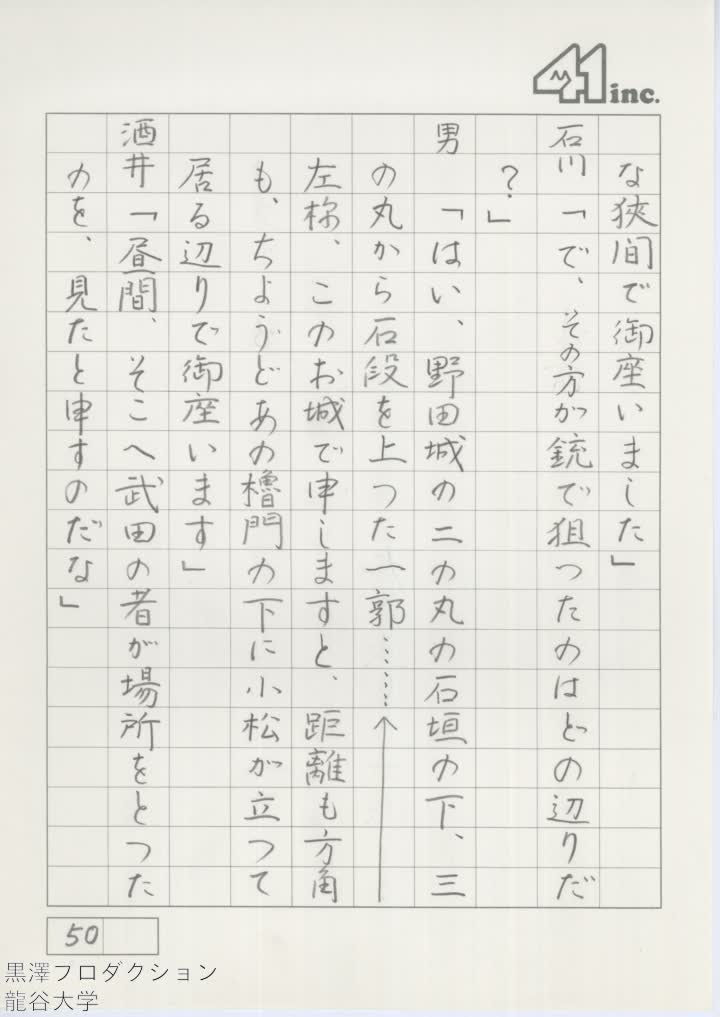 41 inc.
な狭間で御座いました」
石川「で、その方が銃で狙つたのはどの辺りだ
？」
男　「はい、野田城の二の丸の石垣の下、三
の丸から石段を上つた一郭……
左様、このお城で申しますと、距離も方角
も、ちようどあの櫓門の下に小松が立つて
居る辺りで御座います」
酒井「昼間、そこへ武田の者が場所をとつた
のを、見たと申すのだな」
50
黒澤プロダクション
龍谷大学